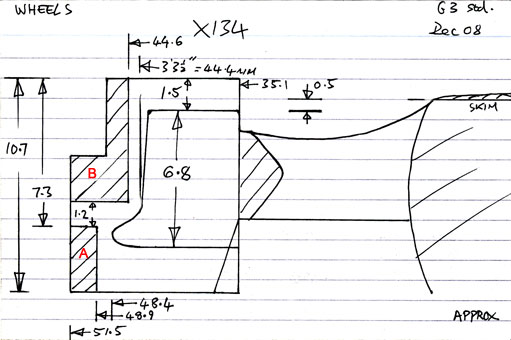 WHEELS
X134
G3 std.
Dec 08
44.6
3'3½"=44.4MM
35.1
0.5
1.5
SKIM
10.7
7.3
B
6.8
1.2
A
48.4
48.9
51.5
APPROX